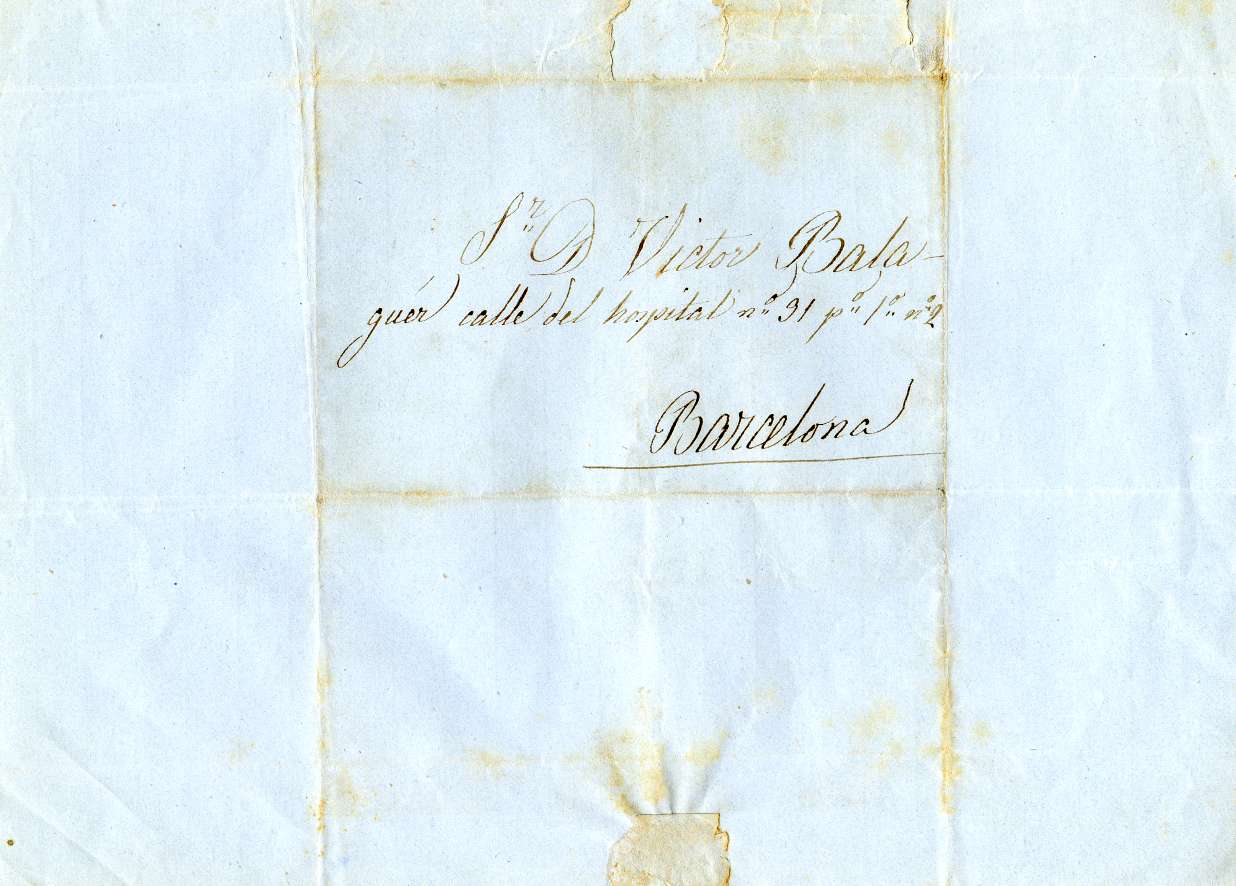 Sr. D Victor Bala-
guér calle del hospital nº 91 pº 1º nº 2
Barcelona